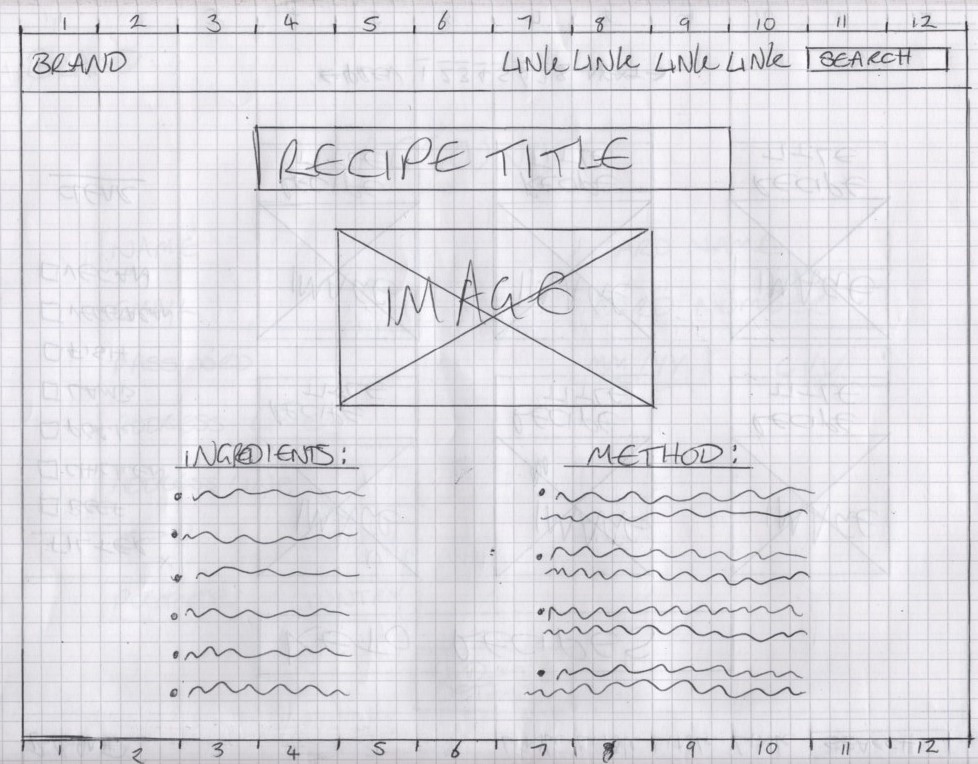 1 2 3 4 5 6 7 8 9 10 11 12
BRAND LINK LINK LINK LINK SEARCH
RECIPE TITLE
IMAGE
INGREDIENTS:
METHOD:
1 2 3 4 5 6 7 8 9 10 11 12